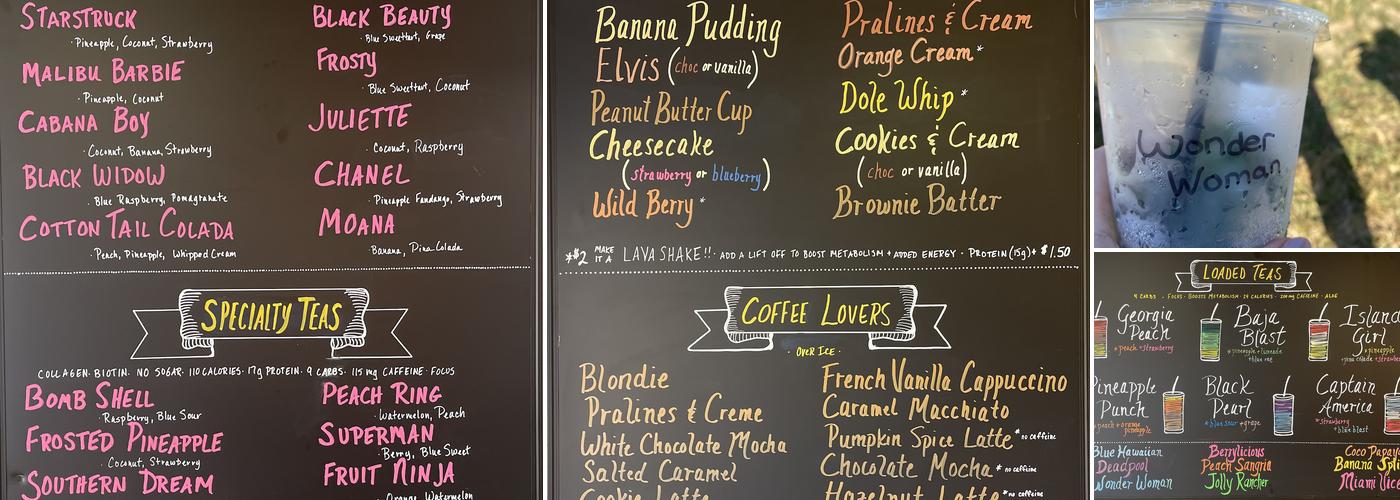 STARSTRUCK
· Pineapple, Coconut, Strawberry
MALIBU BARBIE
· Pineapple, Coconut
CABANA BOY
· Coconut, Banana, Strawberry
BLACK WIDOW
· Blue Raspberry, Pomagranate
COTTON TAIL COLADA
· Peach, Pineapple, Whipped Cream
BLACK BEAUTY
· Blue Sweettart, Grape
FROSTY
· Blue Sweettart, Coconut
JULIETTE
· Coconut, Raspberry
CHANEL
· Pineapple Fandango, Strawberry
MOANA
· Banana, Pina Colada
SPECIALTY TEAS
COLLAGEN · BIOTIN · NO SUGAR · 110 CALORIES · 17g PROTEIN · 9 CARBS · 115 mg CAFFEINE · FOCUS
BOMB SHELL
· Raspberry, Blue Sour
FROSTED PINEAPPLE
· Coconut, Strawberry
SOUTHERN DREAM
PEACH RING
· Watermelon, Peach
SUPERMAN
· Berry, Blue Sweet
FRUIT NINJA
Orange, Watermelon
Banana Pudding
Elvis (choc or vanilla)
Peanut Butter Cup
Cheesecake
(strawberry or blueberry)
Wild Berry*
Pralines & Cream
Orange Cream*
Dole Whip*
Cookies & Cream
(choc or vanilla)
Brownie Batter
*$2 MAKE IT A LAVA SHAKE!! · ADD A LIFT OFF TO BOOST METABOLISM + ADDED ENERGY · PROTEIN (15g) + $1.50
COFFEE LOVERS
· OVER ICE ·
Blondie
Pralines & Creme
White Chocolate Mocha
Salted Caramel
Cookie Latte
French Vanilla Cappuccino
Caramel Macchiato
Pumpkin Spice Latte* no caffeine
Chocolate Mocha* no caffeine
Hazelnut Latte* no caffeine
Wonder
Woman
LOADED TEAS
4 CARBS · FOCUS · BOOSTS METABOLISM · 24 CALORIES · 200mg CAFFEINE · ALOE
Georgia
Peach
+ peach + strawberry
Baja
Blast
+ pineapple + limeade
+ blue
Island
Girl
+ pineapple
+ pina colada
Pineapple
Punch
+ peach + orange
pineapple
Black
Pearl
+ blue sour + grape
Captain
America
+ strawberry
+ blue blast
Blue Hawaiian
Deadpool
Wonder Woman
Berrylicious
Peach Sangria
Jolly Rancher
Coco Papaya
Banana Split
Miami Vice